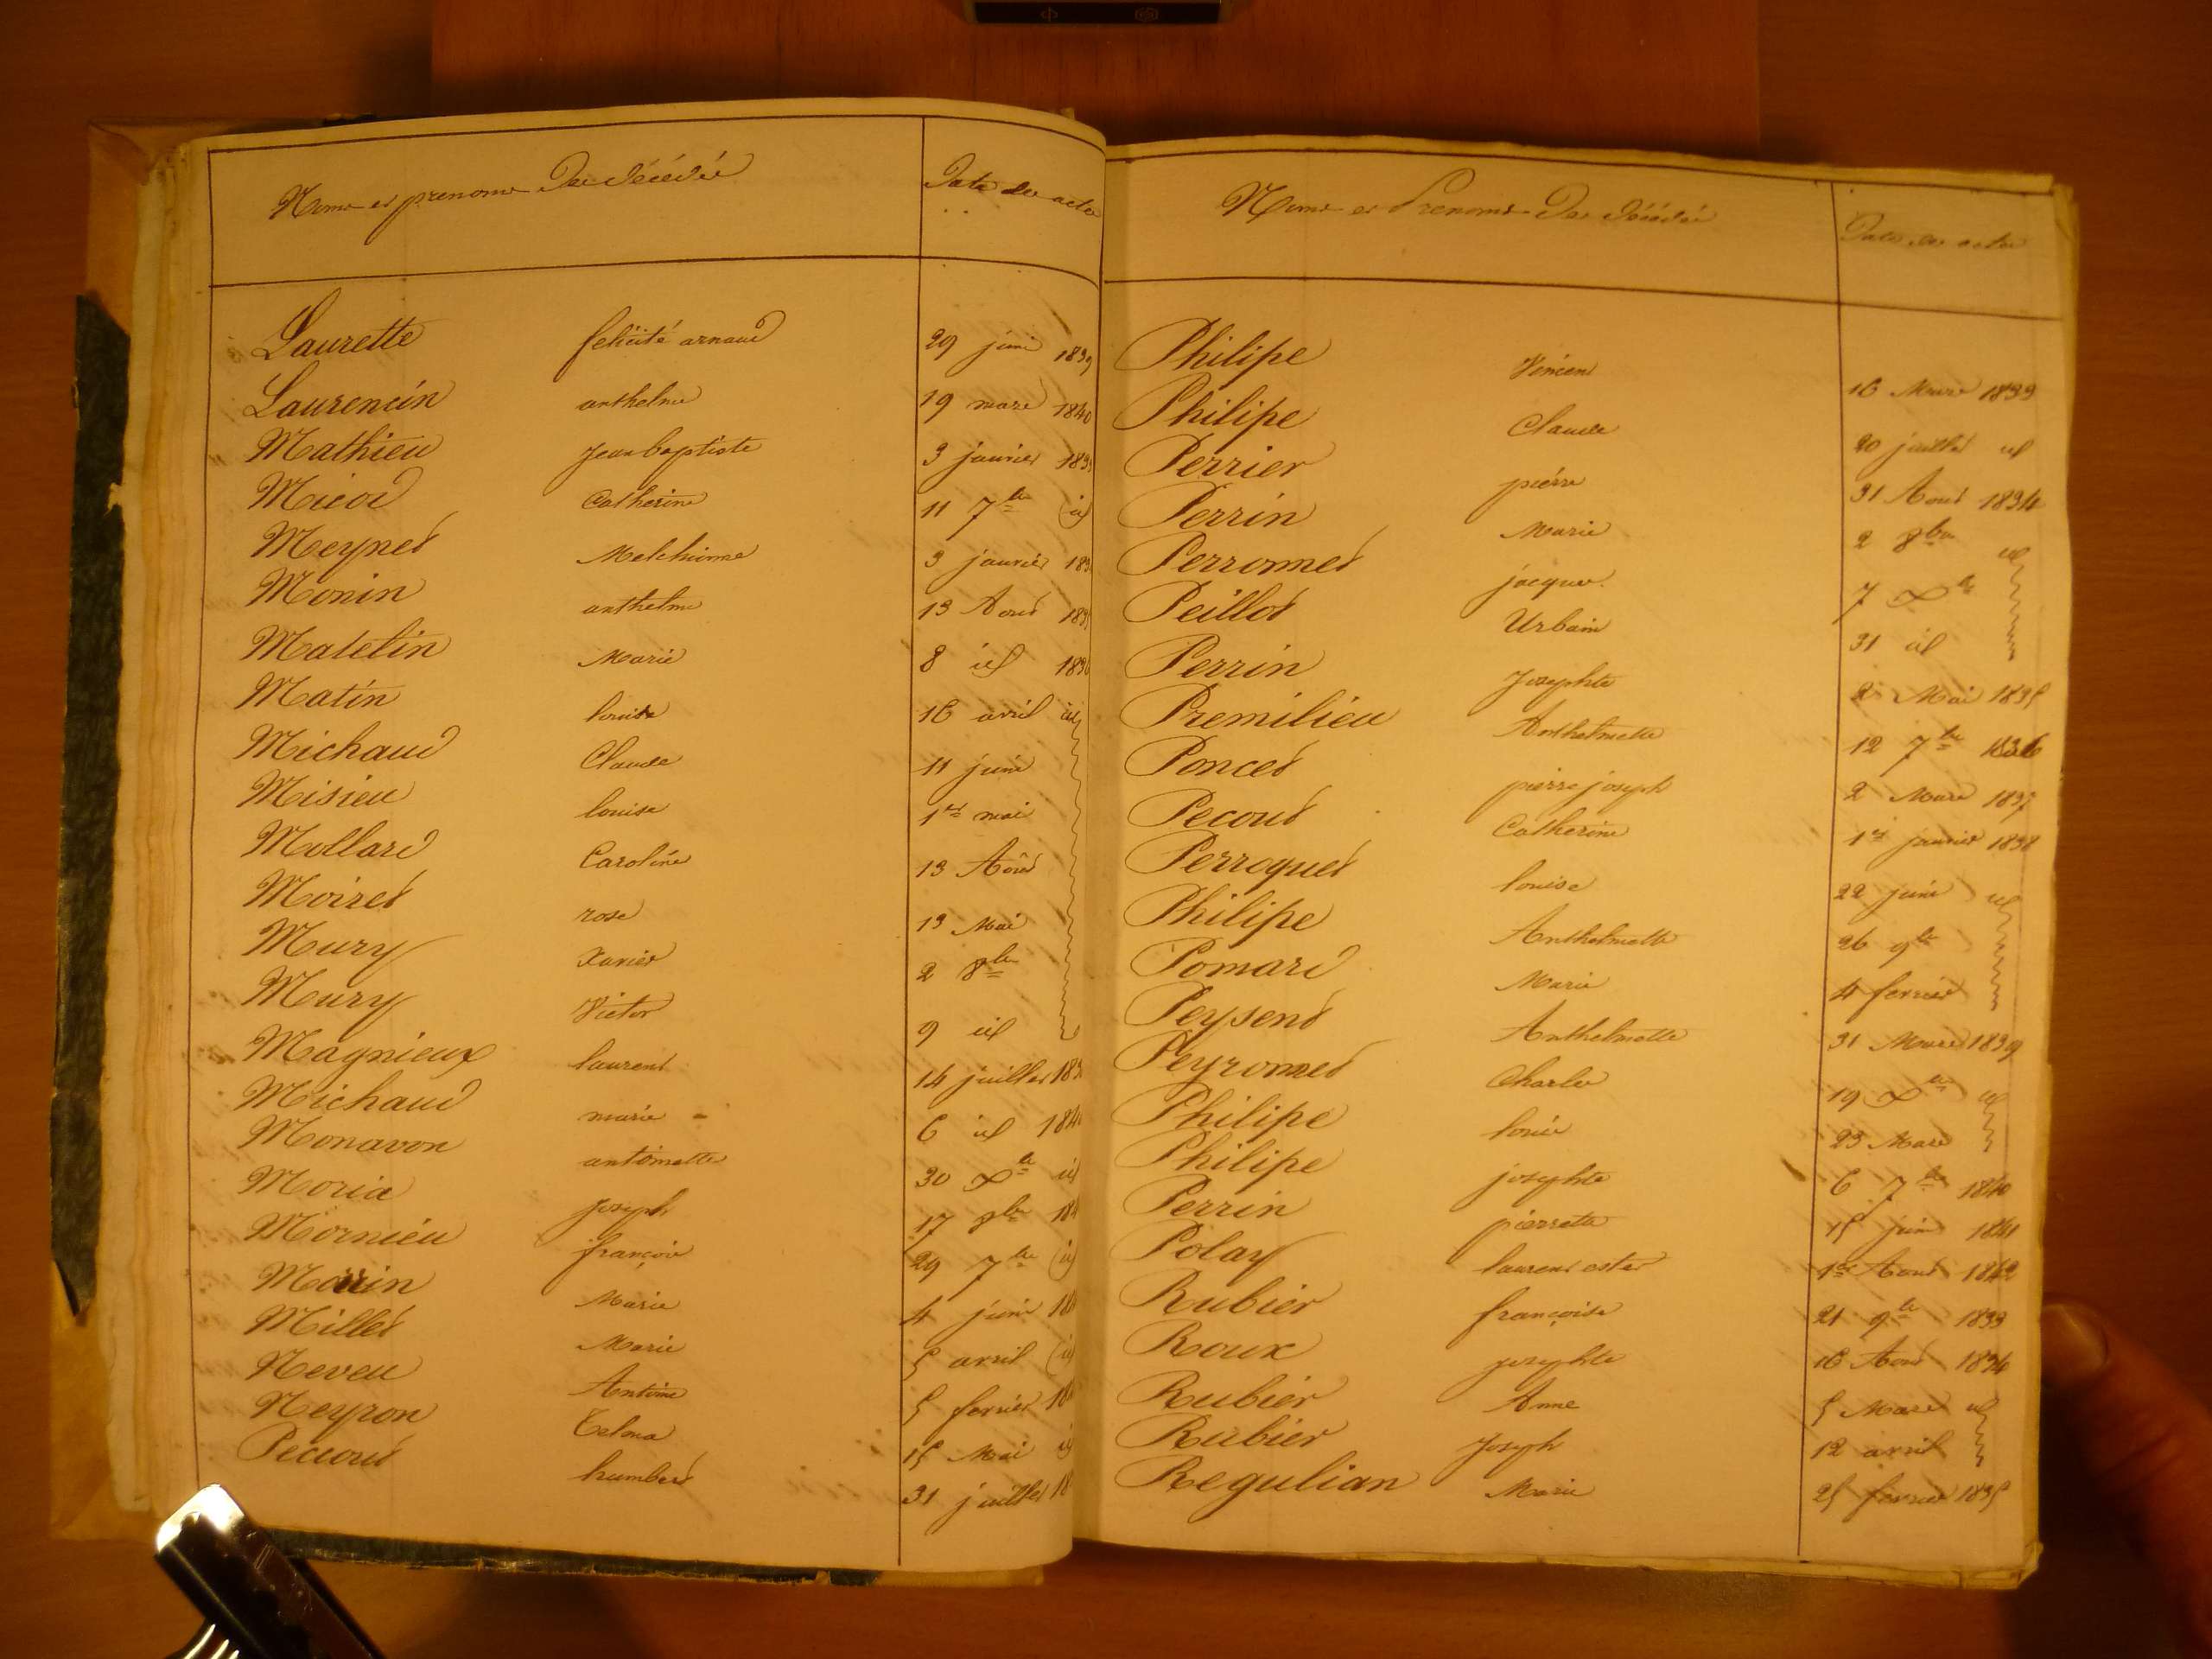 Noms et prenoms des décédés Date des actes
Laurette felicité arnaud 29 juin 1839
Laurencin anthelme 19 mars 1840
Mathieu jean baptiste 3 janvier 183
Micod Catherine 11 7bre id
Meynet Melchionne 3 janvier 183
Monin anthelme 13 Aout 183
Matelin Marie 8 id 1836
Matin louise 16 avril id
Michaud Claude 11 juin
Misieu louise 1er mai
Mollard Caroline 13 Aôut
Moiret rose 13 Mai
Mury Xavier 2 8bre
Mury Victor 9 id
Magnieux laurent 14 juillet 183
Michaud marie 6 id 184
Monavon antoinette 30 Xbre id
Moria joseph 17 8bre 184
Mornieu françois 29 7bre id
Morin Marie 4 juin 18
Millet Marie 5 avril id
Neveu Antoine 5 fevrier 18
Neyron Telma 15 Mai id
Pecoud humbert 31 juillet 18
Noms et Prenoms des décédés Date des actes
Philipe Vincent 16 Mars 1833
Philipe Claude 20 juillet id
Perrier pierre 31 Aout 1834
Perrin Marie 2 8bre id
Perronnet jacques 7 Xbre
Peillot Urbain 31 id
Perrin Josephte 2 Mai 1835
Premilieu Anthelmette 12 7bre 1836
Poncet pierre joseph 2 Mars 1837
Pecoud Catherine 1er janvier 1838
Perroquet louise 22 juin id
Philipe Anthelmette 26 9bre
Pomard Marie 4 fevrier
Peysend Anthelmette 31 Mars 1839
Peyronnet Charles 19 Xbre id
Philipe louis 23 Mars
Philipe josephte 6 7bre 1840
Perrin pierrette 15 juin 1841
Polay laurent ester 1er Aout 1842
Rubier françoise 21 9bre 1833
Roux josephte 16 Aout 1834
Rubier Anne 5 Mars id
Rubier Joseph 12 avril
Regulian Marie 25 fevrier 1835